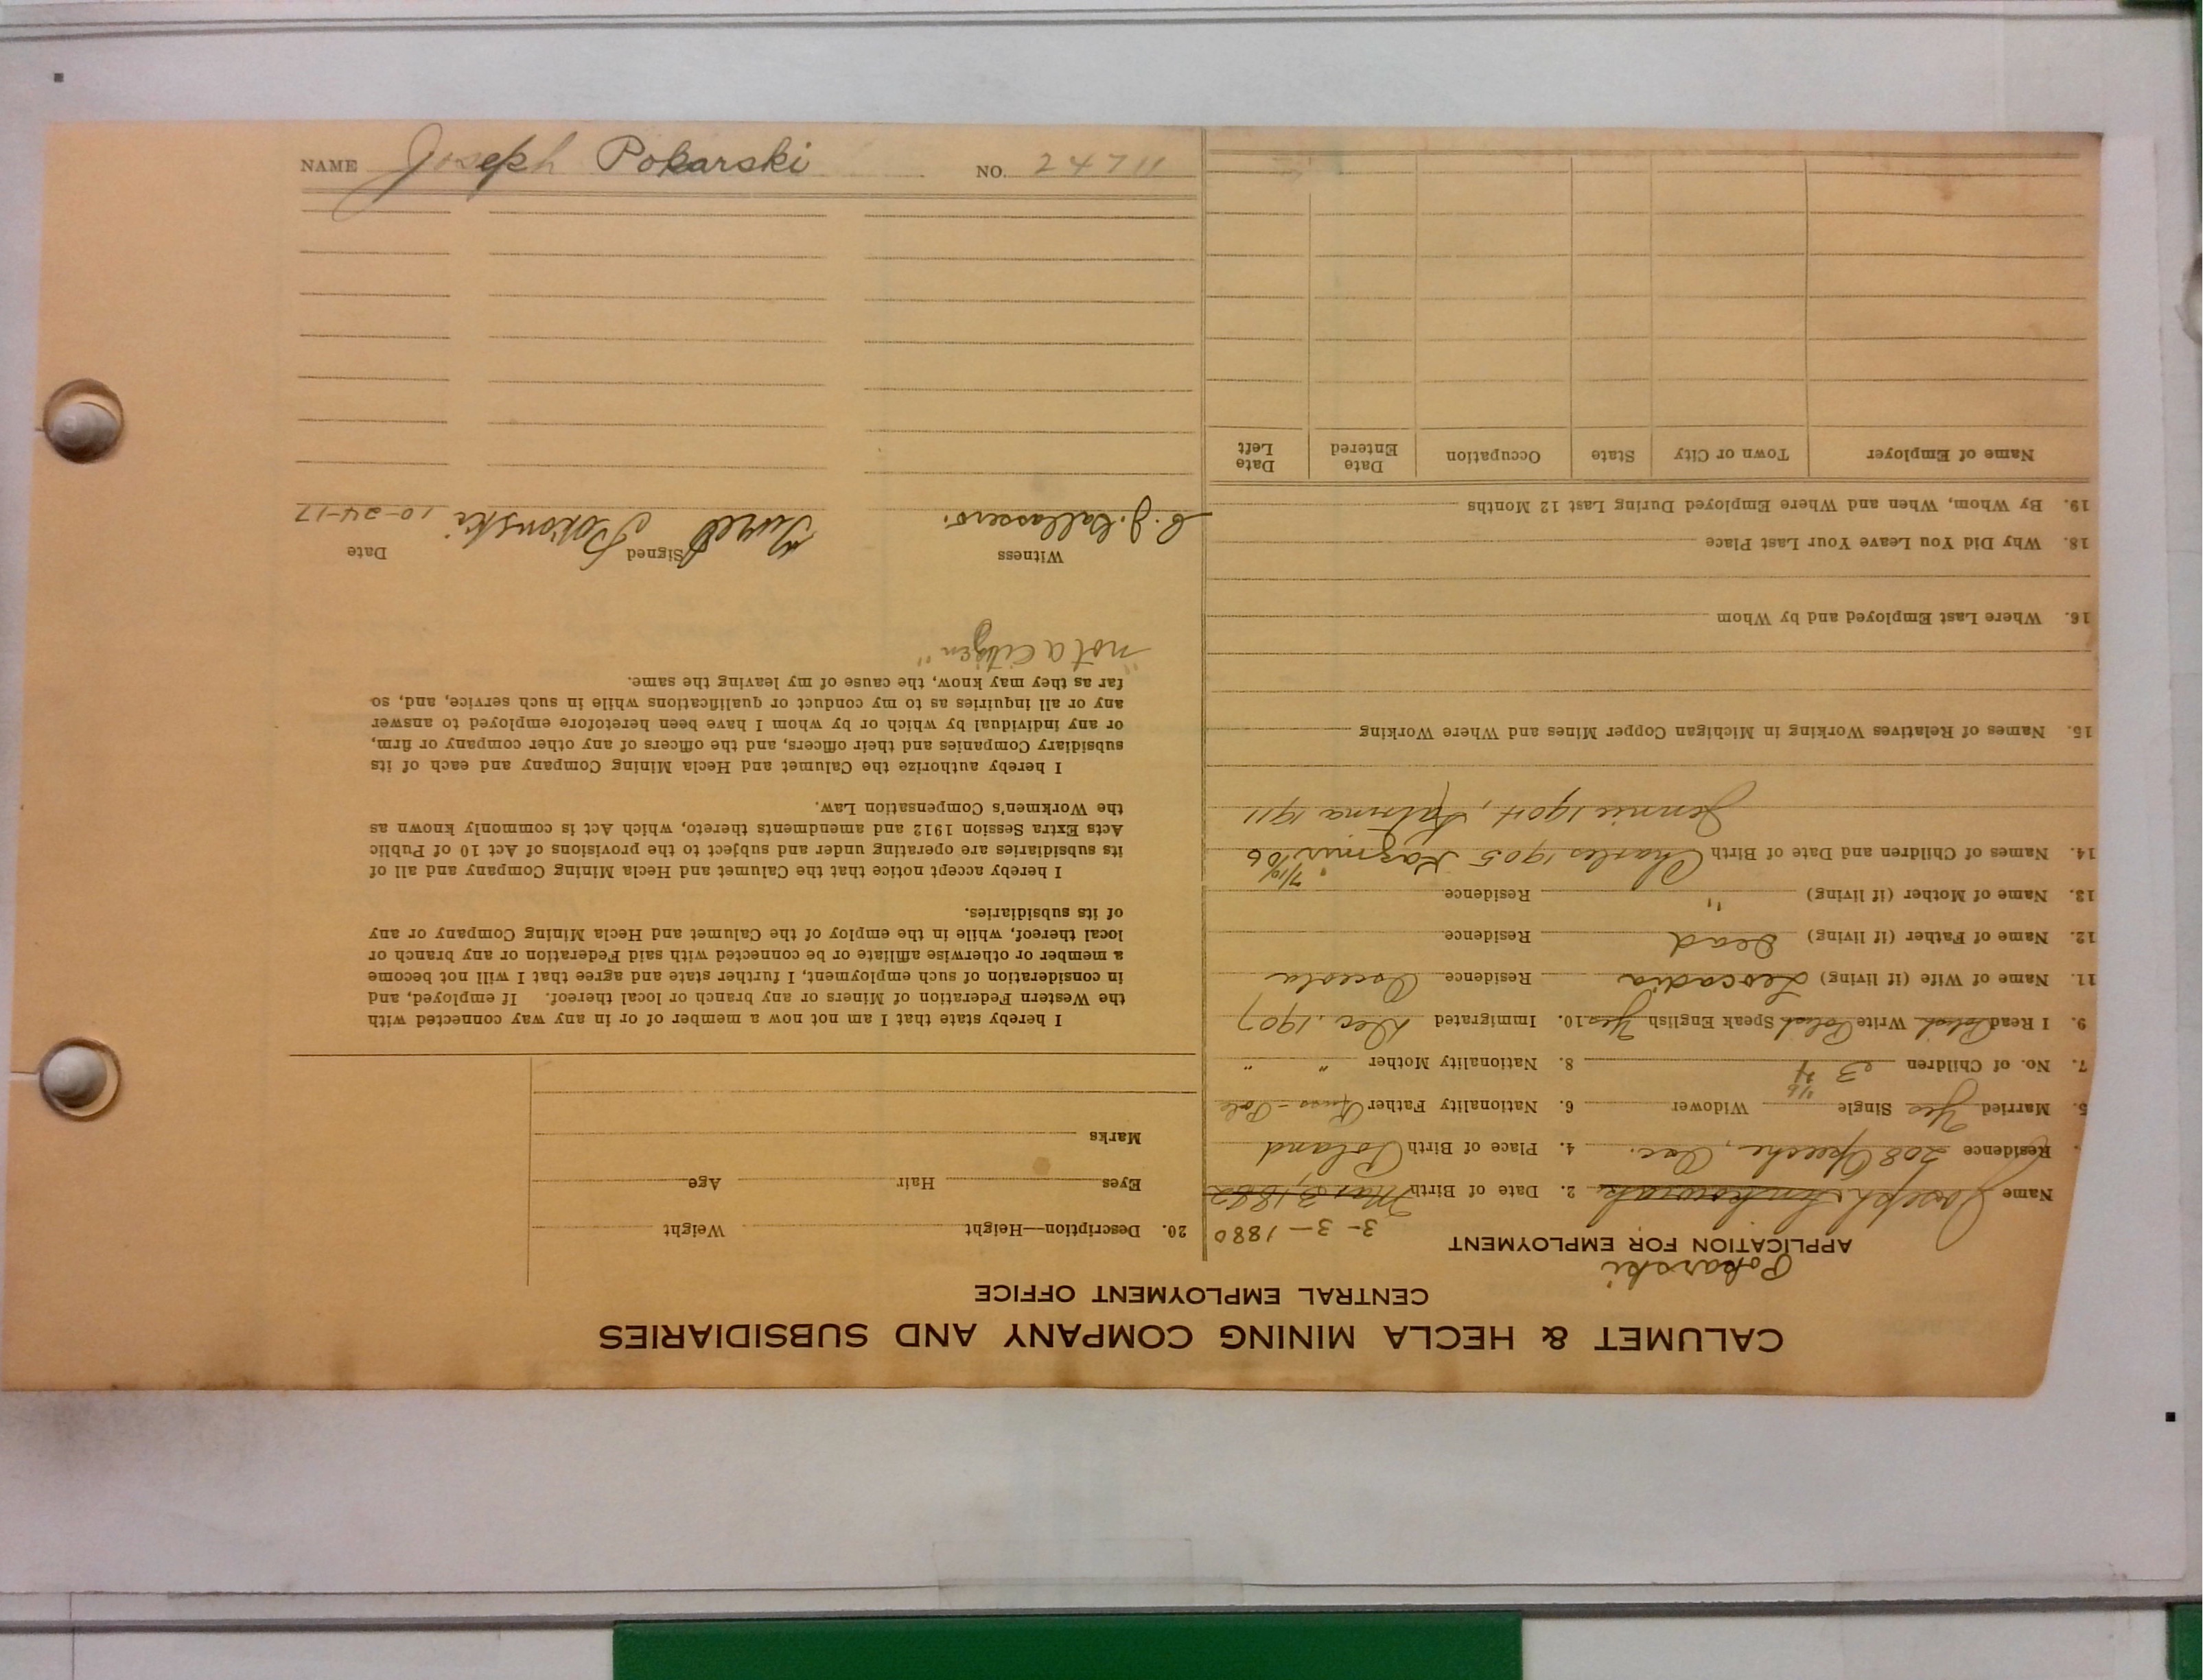 NAME Joseph Pokarski NO. 24711
CALUMET & HECLA MINING COMPANY AND SUBSIDIARIES
CENTRAL EMPLOYMENT OFFICE
Pokarski
APPLICATION FOR EMPLOYMENT
3-3-1880
Name Joseph 2. Date of Birth Mar 3, 1882
Residence 208 Opeeche, Osc. 4. Place of Birth Poland
5. Married Yes Single Widower 6. Nationality Father Russ-Pole
7. No. of Children 3 4 8. Nationality Mother " "
9. I Read Polish Write Polish Speak English Yes 10. Immigrated Dec. 1907
11. Name of Wife (if living) Leocadia Residence Osceola
12. Name of Father (if living) Dead Residence
13. Name of Mother (if living) " Residence
14. Names of Children and Date of Birth Charles 1905 Kazmir 7/19/06
Jennie 1904, 1911
15. Names of Relatives Working in Michigan Copper Mines and Where Working
16. Where Last Employed and by Whom
18. Why Did You Leave Your Last Place
19. By Whom, When and Where Employed During Last 12 Months
Name of Employer Town or City State Occupation Date Entered Date Left
20. Description—Height Weight
Eyes Hair Age
Marks
I hereby state that I am not now a member of or in any way connected with
the Western Federation of Miners or any branch or local thereof. If employed, and
in consideration of such employment, I further state and agree that I will not become
a member or otherwise affiliate or be connected with said Federation or any branch or
local thereof, while in the employ of the Calumet and Hecla Mining Company or any
of its subsidiaries.
I hereby accept notice that the Calumet and Hecla Mining Company and all of
its subsidiaries are operating under and subject to the provisions of Act 10 of Public
Acts Extra Session 1912 and amendments thereto, which Act is commonly known as
the Workmen's Compensation Law.
I hereby authorize the Calumet and Hecla Mining Company and each of its
subsidiary Companies and their officers, and the officers of any other company or firm,
or any individual by which or by whom I have been heretofore employed to answer
any or all inquiries as to my conduct or qualifications while in such service, and, so
far as they may know, the cause of my leaving the same.
"not a citizen"
Witness Signed Date
10-24-17